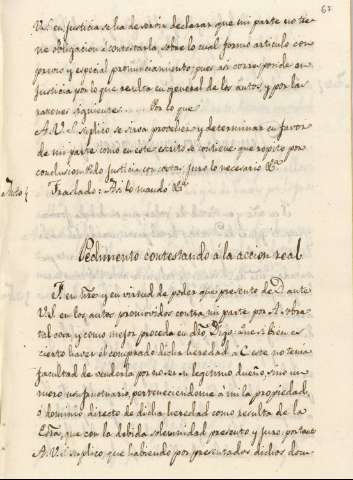 67
Vd. en Justicia se ha de servir declarar que mi parte no tie
ne obligacion a contestarla, sobre lo cual formo articulo con
previo y especial pronunciamiento; pues asi corresponde en
Justicia por lo que resulta en general de los autos, y por las
razones siguientes. Por lo que
A. Vd. Suplico se sirva proveher y determinar en favor
de mi parte como en este escrito se contiene que repito por
conclusion Pido Justicia con costas, juro lo necesario &a.
Auto
Traslado: Asi lo mandó &a.
Pedimento contestando á la accion real
F. en nre. y en virtud de poder que presento de D. ante
Vd. en los autos promovidos contra mi parte por A. sobre
tal cosa, y como mejor proceda en dro. Digo: que si bien es
cierto haver el comprado dicha heredad à C. este no tenia
facultad de venderla por no ser su legitimo dueño, sino un
mero usufructuario, perteneciendome á mi la propiedad,
ó dominio directo de dicha heredad como resulta de la
Esra. que con la debida solemnidad presento y juro. portanto
A. Vd. Suplico, que habiendo por presentados dichos docu-